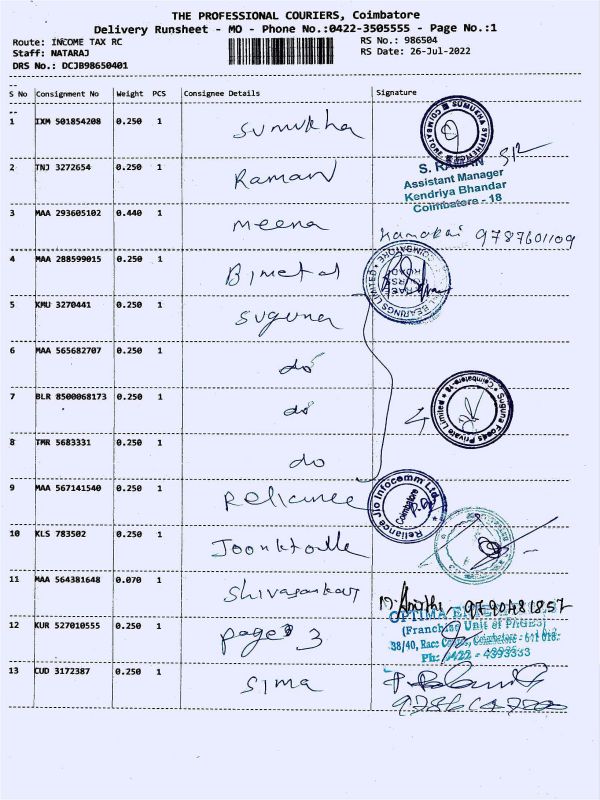 THE PROFESSIONAL COURIERS, Coimbatore
Delivery Runsheet - MO - Phone No.:0422-3505555 - Page No.:1
Route: INCOME TAX RC RS No.: 986504
Staff: NATARAJ RS Date: 26-Jul-2022
DRS No.: DCJB98650401
S No Consignment No Weight PCS Consignee Details Signature
1 IXM 501854208 0.250 1 Sumukha
SUMUKHA SYNTHETICS COIMBATORE
2 TNJ 3272654 0.250 1 Raman
S. RAMAN
Assistant Manager
Kendriya Bhandar
Coimbatore - 18
3 MAA 293605102 0.440 1 meena 9787601109
4 MAA 288599015 0.250 1 Bimetal
BEARINGS LIMITED COIMBATORE
5 KMU 3270441 0.250 1 suguna
6 MAA 565682707 0.250 1 do
7 BLR 8500068173 0.250 1 do
Suguna Foods Private Limited Coimbatore-18
8 TMR 5683331 0.250 1 do
9 MAA 567141540 0.250 1 Reliance
Reliance Jio Infocomm Ltd. Coimbatore
10 KLS 783502 0.250 1
11 MAA 564381648 0.070 1 Shivasankar 9790481857
12 KUR 527010555 0.250 1 page 3
OPTIMA
(Franchise Unit of PAGE3)
38/40, Race Course, Coimbatore - 641 018.
Ph: 0422 - 4393333
13 CUD 3172387 0.250 1 Sima